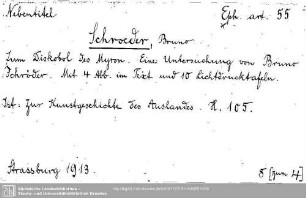 Nebentitel
Eph. art. 55
Schroeder, Bruno
Zum Diskobol des Myron. Eine Untersuchung von Bruno
Schröder. Mit 4 Abb. im Text und 10 Lichtdrucktafeln.
Ist. Zur Kunstgeschichte des Auslandes. H. 105.
Strassburg 1913.
Sächsische Landesbibliothek -
Staats- und Universitätsbibliothek Dresden